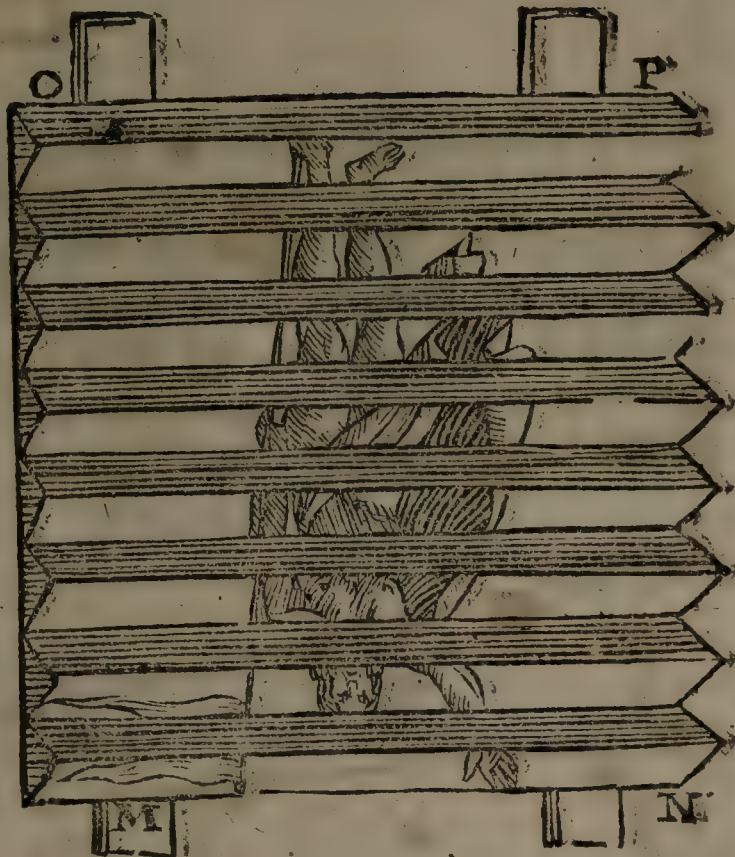 O P
M N